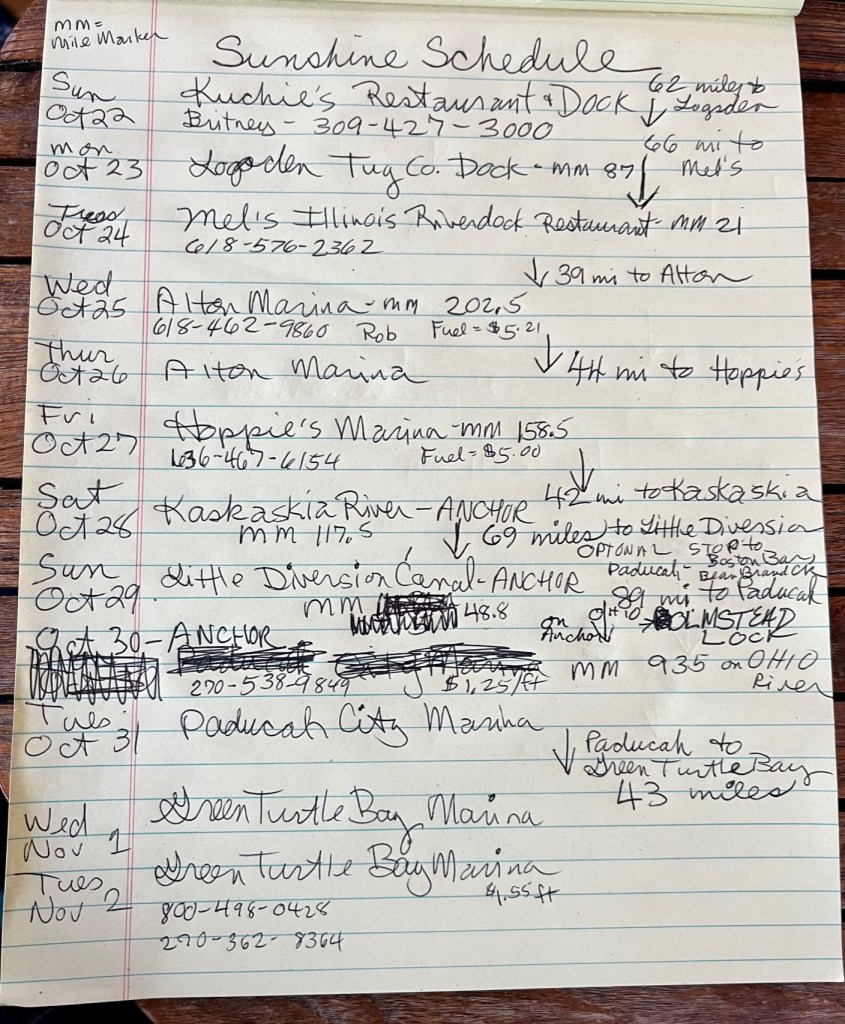 mm=
Mile Marker
Sunshine Schedule
Sun
Oct 22
Kuchie's Restaurant & Dock
62 miles to
↓ Logsden
Britney - 309-427-3000
66 mi to
Mel's
mon
Oct 23
Logsden Tug Co. Dock - mm 87
Tues
Oct 24
Mel's Illinois Riverdock Restaurant - mm 21
618-576-2362
↓ 39 mi to Alton
Wed
Oct 25
Alton Marina - mm 202.5
618-462-9860 Rob Fuel = $5.21
Thur
Oct 26
Alton Marina
↓ 44 mi to Hoppie's
Fri
Oct 27
Hoppie's Marina - mm 158.5
636-467-6154 Fuel = $5.00
↓ 42 mi to Kaskaskia
Sat
Oct 28
Kaskaskia River - ANCHOR
mm 117.5
↓ 69 miles to Little Diversion
Sun
Oct 29
Little Diversion Canal - ANCHOR
mm 48.8
OPTIONAL STOP to
Paducah - Boston Bar
89 mi to Paducah
Oct 30 - ANCHOR
on
Anchor
OHIO
OLMSTEAD
LOCK
270-538-9849 $1.25/ft
mm 935 on OHIO
River
Tues
Oct 31
Paducah City Marina
↓ Paducah to
Green Turtle Bay
43 miles
Wed
Nov 1
Green Turtle Bay Marina
Tues
Nov 2
Green Turtle Bay Marina
$1.55 ft
800-498-0428
270-362-8364